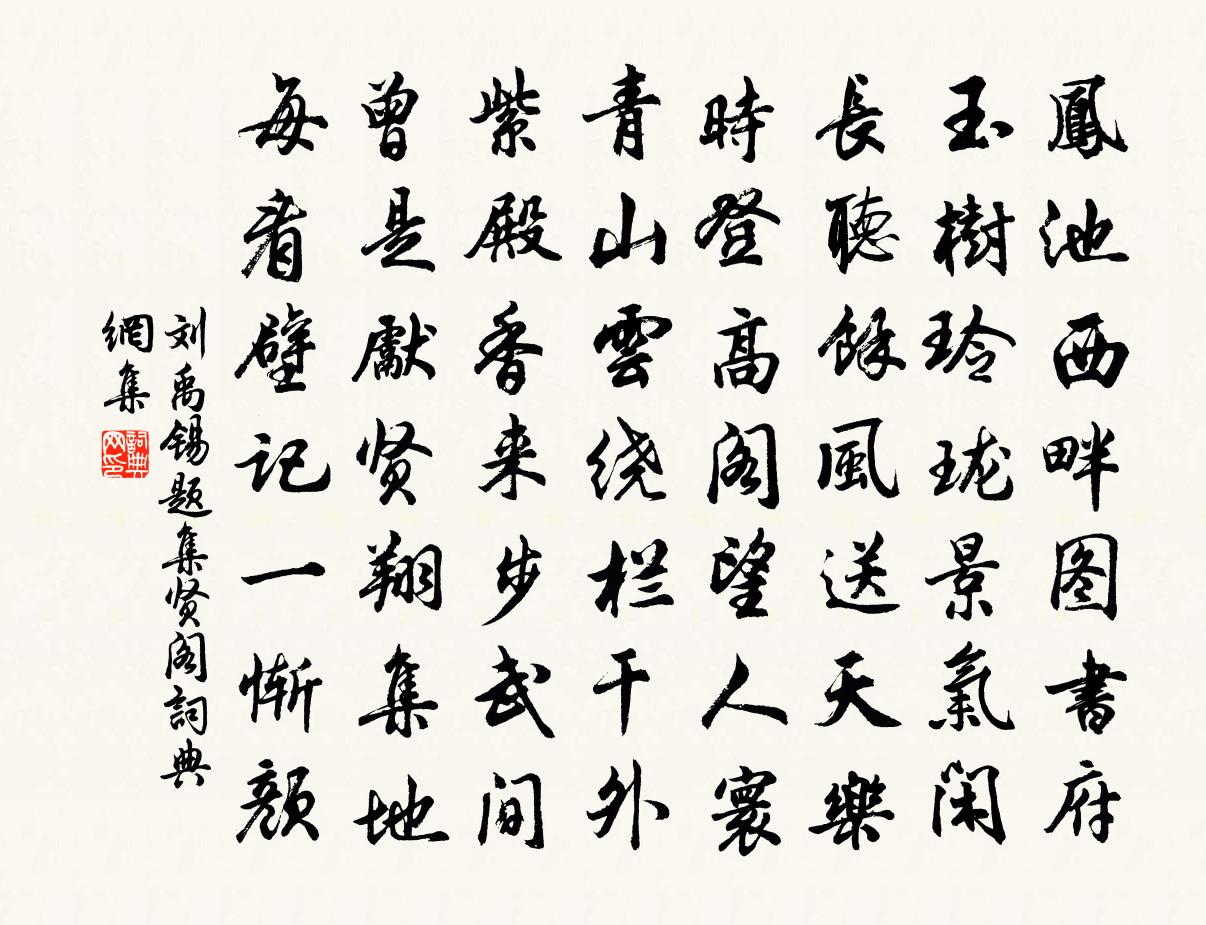 鳳池西畔图書府
玉樹玲珑景氣闲
長聽餘風送天樂
時登高阁望人寰
青山雲绕栏干外
紫殿香来步武间
曾是獻贤翔集地
每看壁记一惭顔
刘禹锡题集贤阁詞典
網集
詞典
网印